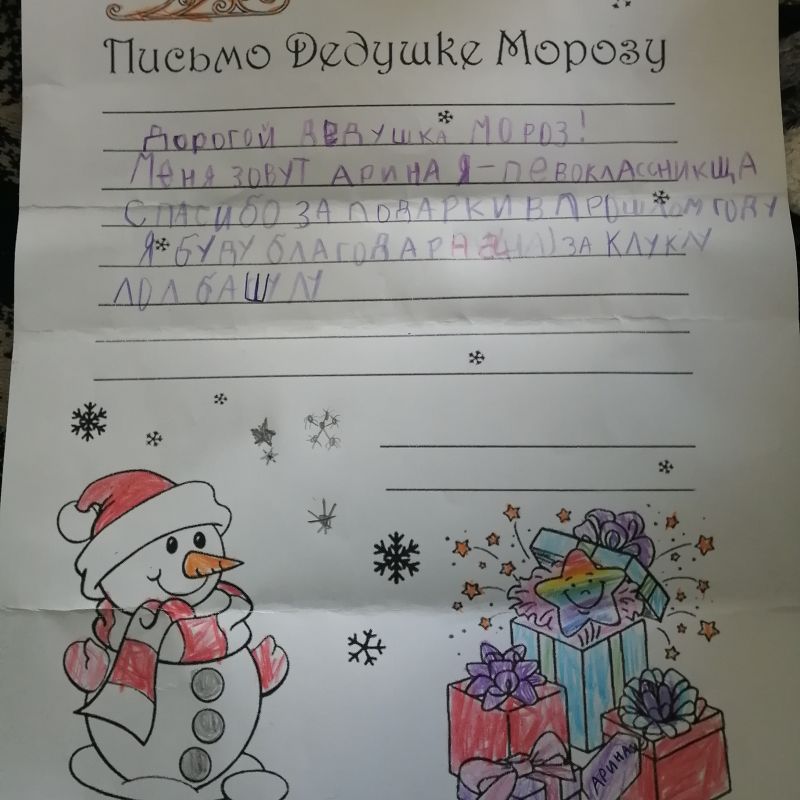 Письмо Дедушке Морозу
Дорогой Дедушка Мороз!
Меня зовут Арина я - певоклассникща
Спасибо за подарки в прошлом году
Я буду благодарна за клуклу
лол башулу
Арина